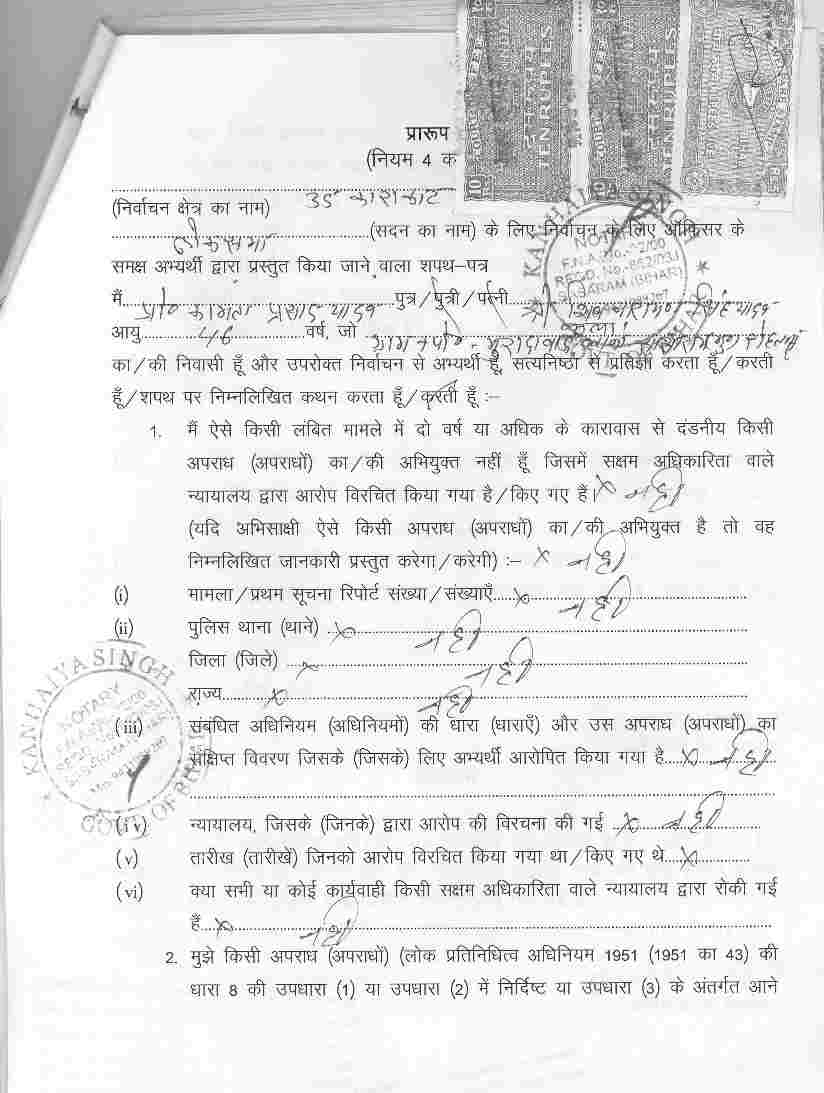 TEN RUPEES
TEN RUPEES
प्रारूप
(नियम 4 क
(निर्वाचन क्षेत्र का नाम) काराकाट
लोकसभा (सदन का नाम) के लिए निर्वाचन के लिए ऑफिसर के
समक्ष अभ्यर्थी द्वारा प्रस्तुत किया जाने वाला शपथ–पत्र
मैं प्रो० कामता प्रसाद यादव पुत्र/पुत्री/पत्नी श्री शिव सिंह यादव
आयु 46 वर्ष, जो
का/की निवासी हूँ और उपरोक्त निर्वाचन से अभ्यर्थी हूँ, सत्यनिष्ठा से प्रतिज्ञा करता हूँ/करती
हूँ/शपथ पर निम्नलिखित कथन करता हूँ/करती हूँ :–
1. मैं ऐसे किसी लंबित मामले में दो वर्ष या अधिक के कारावास से दंडनीय किसी
अपराध (अपराधों) का/की अभियुक्त नहीं हूँ जिसमें सक्षम अधिकारिता वाले
न्यायालय द्वारा आरोप विरचित किया गया है/किए गए हैं। × नहीं
(यदि अभिसाक्षी ऐसे किसी अपराध (अपराधों) का/की अभियुक्त है तो वह
निम्नलिखित जानकारी प्रस्तुत करेगा/करेगी) :– × नहीं
(i) मामला/प्रथम सूचना रिपोर्ट संख्या/संख्याएँ × नहीं
(ii) पुलिस थाना (थाने) × नहीं
जिला (जिले) × नहीं
राज्य × नहीं
(iii) संबंधित अधिनियम (अधिनियमों) की धारा (धाराएँ) और उस अपराध (अपराधों) का
संक्षिप्त विवरण जिसके (जिसके) लिए अभ्यर्थी आरोपित किया गया है × नहीं
(iv) न्यायालय, जिसके (जिनके) द्वारा आरोप की विरचना की गई × नहीं
(v) तारीख (तारीखें) जिनको आरोप विरचित किया गया था/किए गए थे ×
(vi) क्या सभी या कोई कार्यवाही किसी सक्षम अधिकारिता वाले न्यायालय द्वारा रोकी गई
हैं × नहीं
2. मुझे किसी अपराध (अपराधों) (लोक प्रतिनिधित्व अधिनियम 1951 (1951 का 43) की
धारा 8 की उपधारा (1) या उपधारा (2) में निर्दिष्ट या उपधारा (3) के अंतर्गत आने
KANHAIYA SINGH
NOTARY
GOVT OF BIHAR
NOTARY
SASARAM (BIHAR)